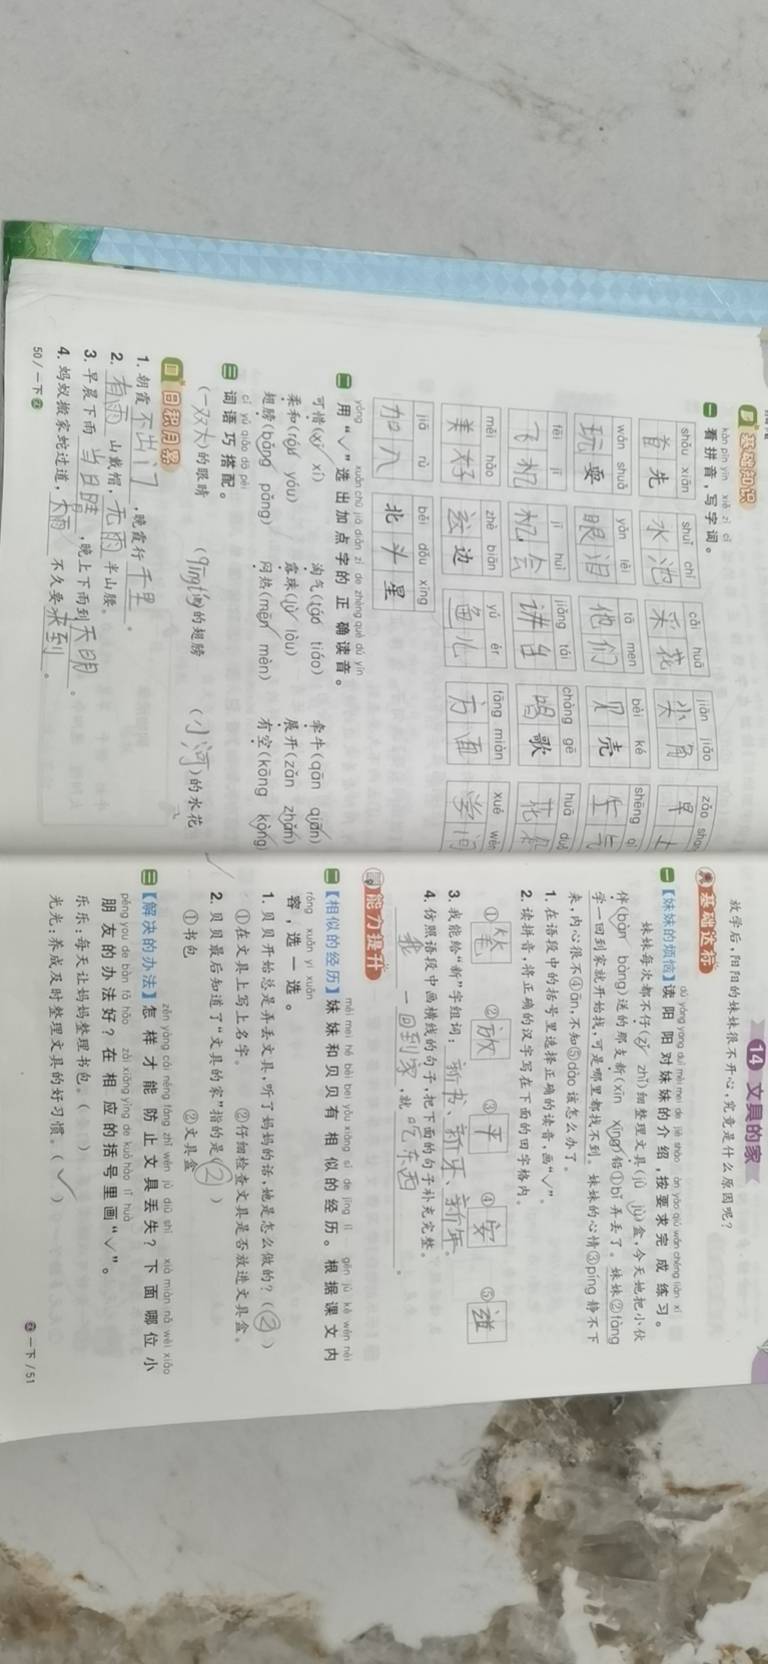 基础知识
kàn pīn yīn xiě zì cí
一 看拼音,写字词。
shǒu xiān shuǐ chí cǎi huā jiān jiǎo zǎo
首先 水池 采花 尖角 早
wán shuǎ yǎn lèi tā men bèi ké shēng
玩耍 眼泪 他们 贝壳 生气
fēi jī jī huì jiǎng tái chàng gē huā
飞机 机会 讲台 唱歌 花
měi hǎo zhè biān yú ér fāng miàn xué wèn
美好 这边 鱼儿 方面 学问
jiā rù běi dǒu xīng
加入 北斗星
yòng xuǎn chū jiā diǎn zì de zhèng què dú yīn
二 用“√”选出加点字的正确读音。
可惜(xī xí) 淘气(táo tiáo) 牵牛(qān qiān)
柔和(róu yóu) 露珠(lù lòu) 展开(zǎn zhǎn)
翅膀(bǎng pǎng) 闷热(mēn mèn) 有空(kōng kòng)
cí yǔ qiǎo dā pèi
三 词语巧搭配。
(一双大)的眼睛 (qīngtíng)的翅膀 (小河)的水花
四 日积月累
1. 朝霞不出门,晚霞行千里。
2. 有雨山戴帽,无雨半山腰。
3. 早晨下雨当日晴,晚上下雨到天明。
4. 蚂蚁搬家蛇过道,大雨不久要来到。
50/一下
14 文具的家
放学后,阳阳的妹妹很不开心,究竟是什么原因呢?
基础达标
dú yáng yang duì mèi mei de jiè shào àn yāo qiú wán chéng liàn xí
一【妹妹的烦恼】读阳阳对妹妹的介绍,按要求完成练习。
妹妹每次都不仔(zǐ zhǐ)细整理文具(jù jǜ)盒,今天她把小伙
伴(bàn bàng)送的那支新(xīn xīng)铅①bǐ弄丢了。妹妹②fàng
学一回到家就开始找,可是哪里都找不到。妹妹的心情③píng静不下
来,内心很不④ān,不知⑤dào该怎么办了。
1. 在语段中的括号里选择正确的读音,画“√”。
2. 读拼音,将正确的汉字写在下面的田字格内。
①笔 ②放 ③平 ④安 ⑤道
3. 我能给“新”字组词:新书、新牙、新年。
4. 仿照语段中画横线的句子,把下面的句子补充完整。
我一回到家,就吃东西。
能力提升
mèi mei hé bèi bei yǒu xiāng sì de jīng lì gēn jù kè wén nèi
二【相似的经历】妹妹和贝贝有相似的经历。根据课文内
róng xuǎn yi xuǎn
容,选一选。
1. 贝贝开始总是弄丢文具,听了妈妈的话,她是怎么做的?(②)
①在文具上写上名字。 ②仔细检查文具是否放进文具盒。
2. 贝贝最后知道了“文具的家”指的是(②)
①书包 ②文具盒
zěn yàng cái néng fáng zhǐ wén jù diū shī xià miàn nǎ wèi xiǎo
三【解决的办法】怎样才能防止文具丢失?下面哪位小
péng you de bàn fǎ hǎo zài xiāng yìng de kuò hào lǐ huà
朋友的办法好?在相应的括号里画“√”。
乐乐:每天让妈妈整理书包。( )
光光:养成及时整理文具的好习惯。(√)
一下/51